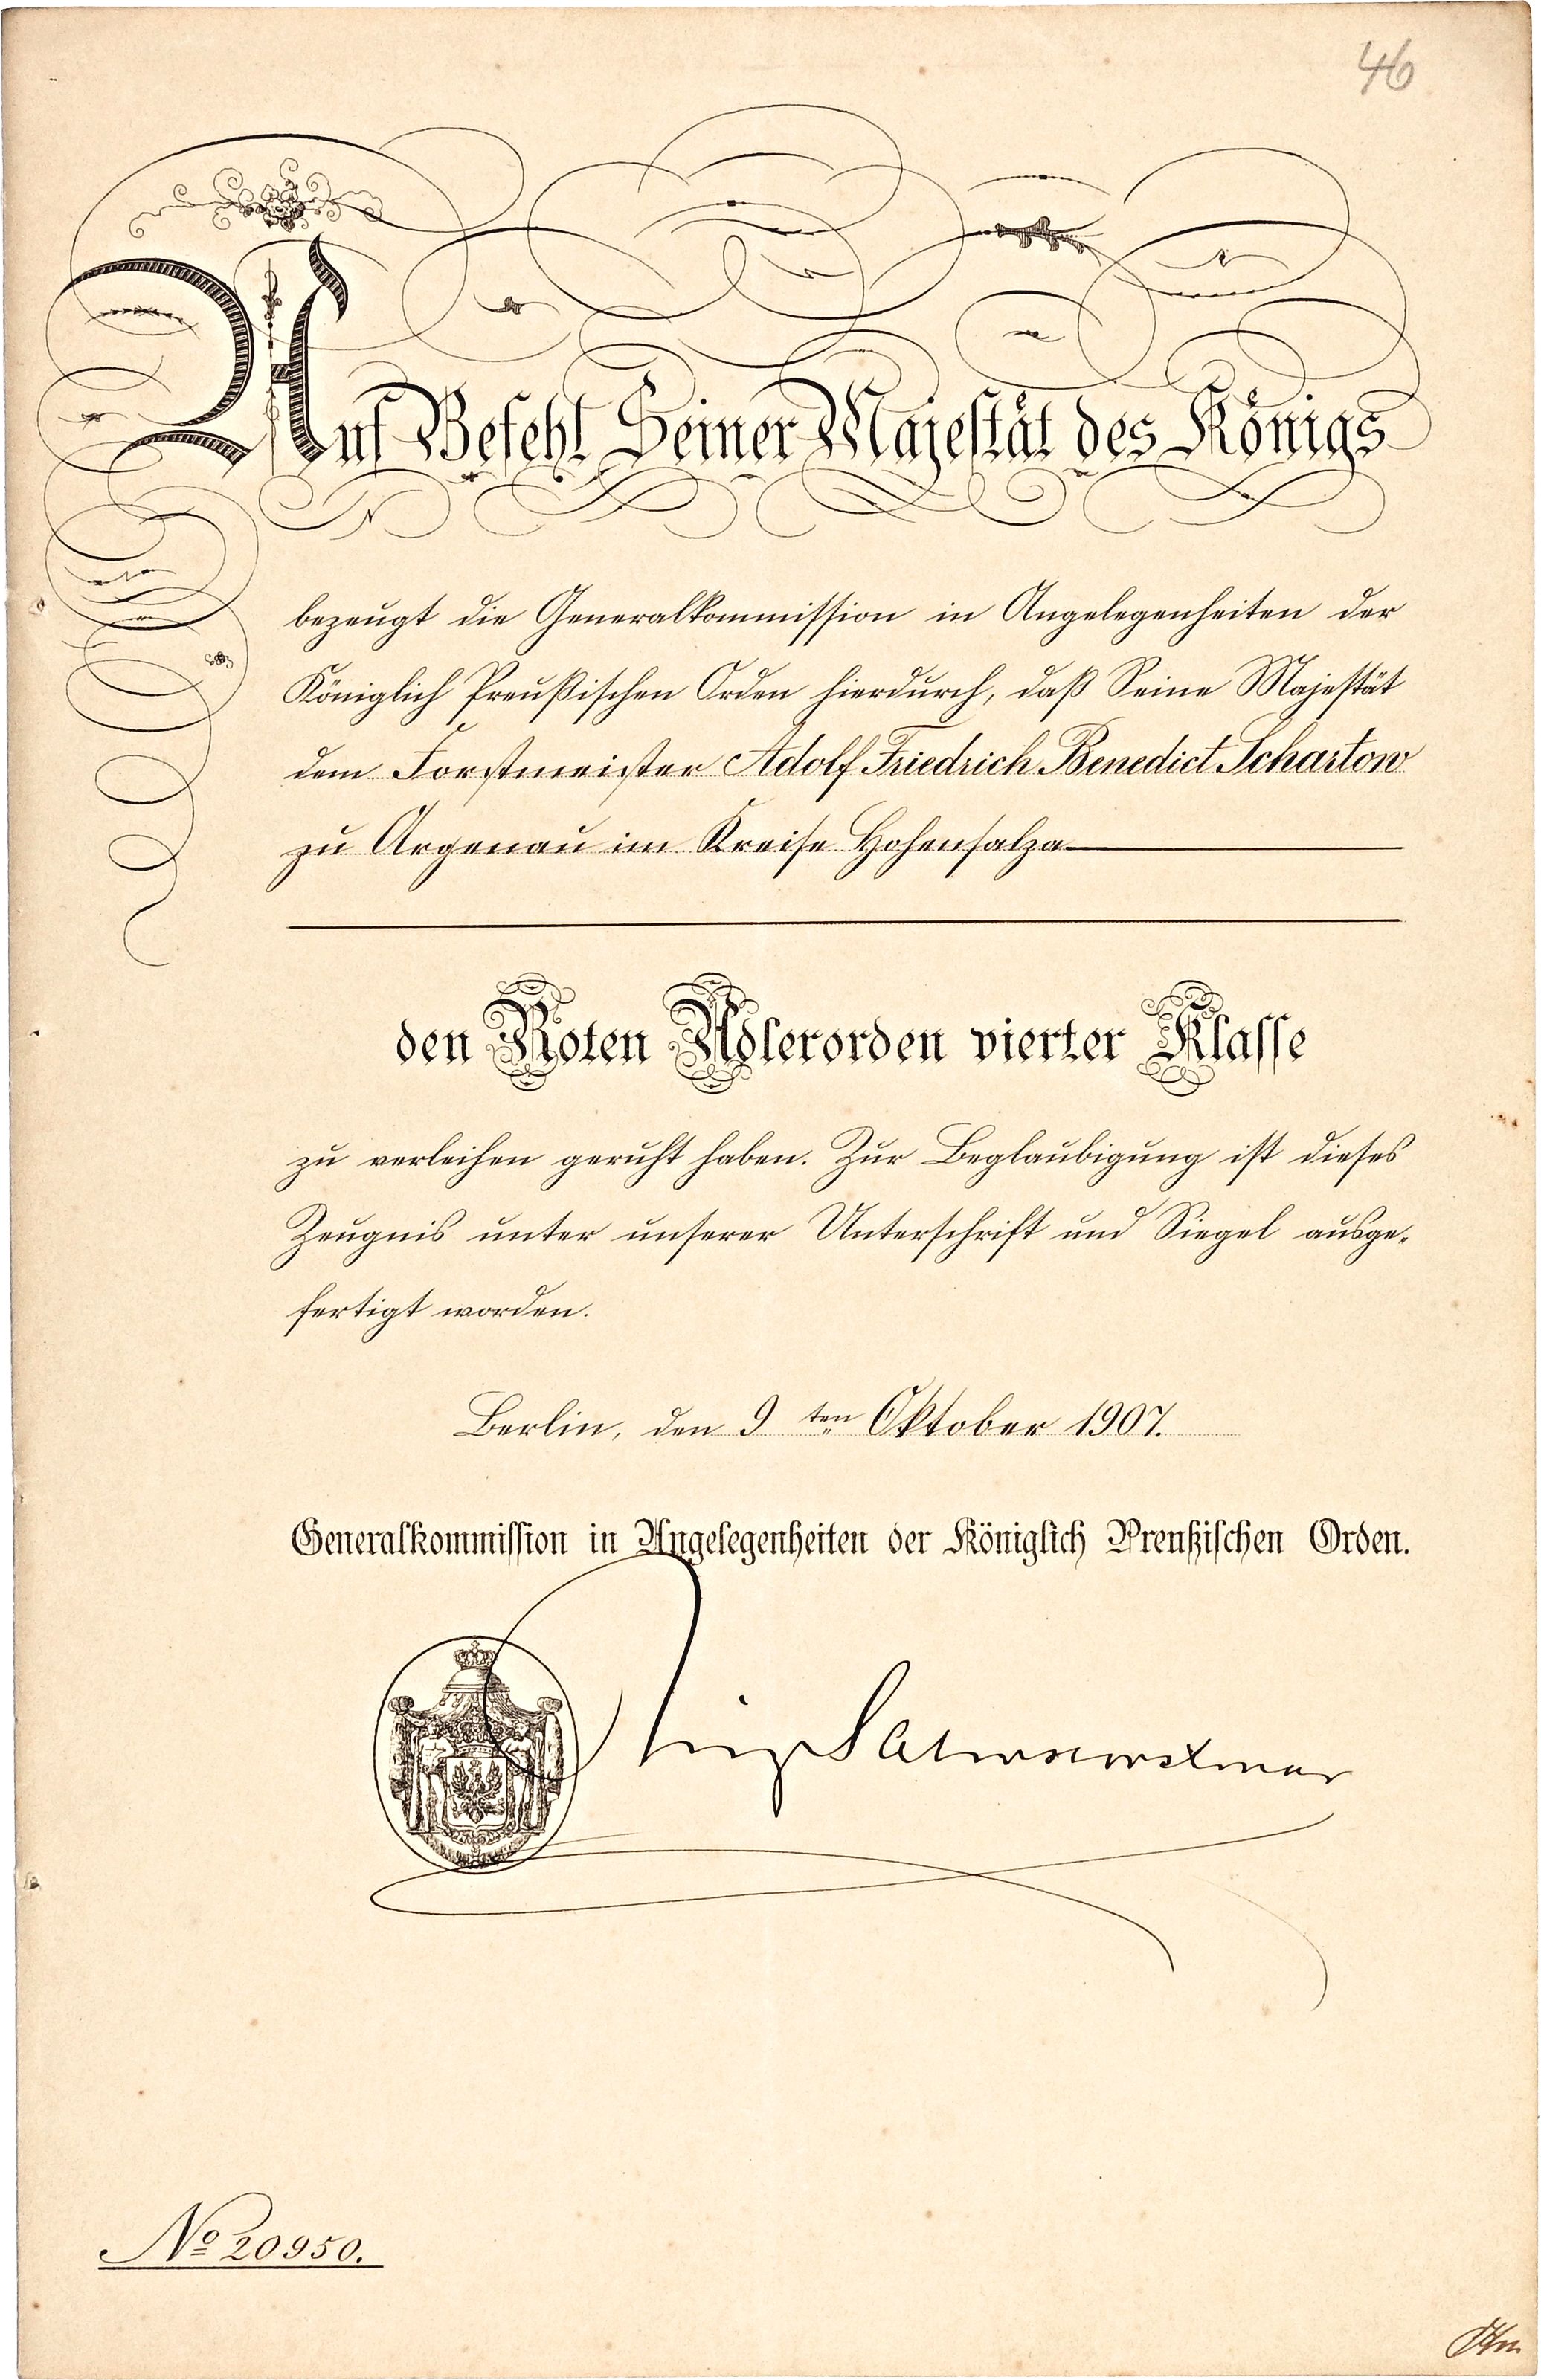 46
Auf Befehl Seiner Majestät des Königs
bezeugt die Generalkommission in Angelegenheiten der
Königlich Preußischen Orden hierdurch, daß Seine Majestät
dem Forstmeister Adolf Friedrich Benedict Schartow
zu Argenau im Kreise Hohensalza
den Roten Adlerorden vierter Klasse
zu verleihen geruht haben. Zur Beglaubigung ist dieses
Zeugnis unter unserer Unterschrift und Siegel ausge-
fertigt worden.
Berlin, den 9ten Oktober 1907.
Generalkommission in Angelegenheiten der Königlich Preußischen Orden.
No 20950.